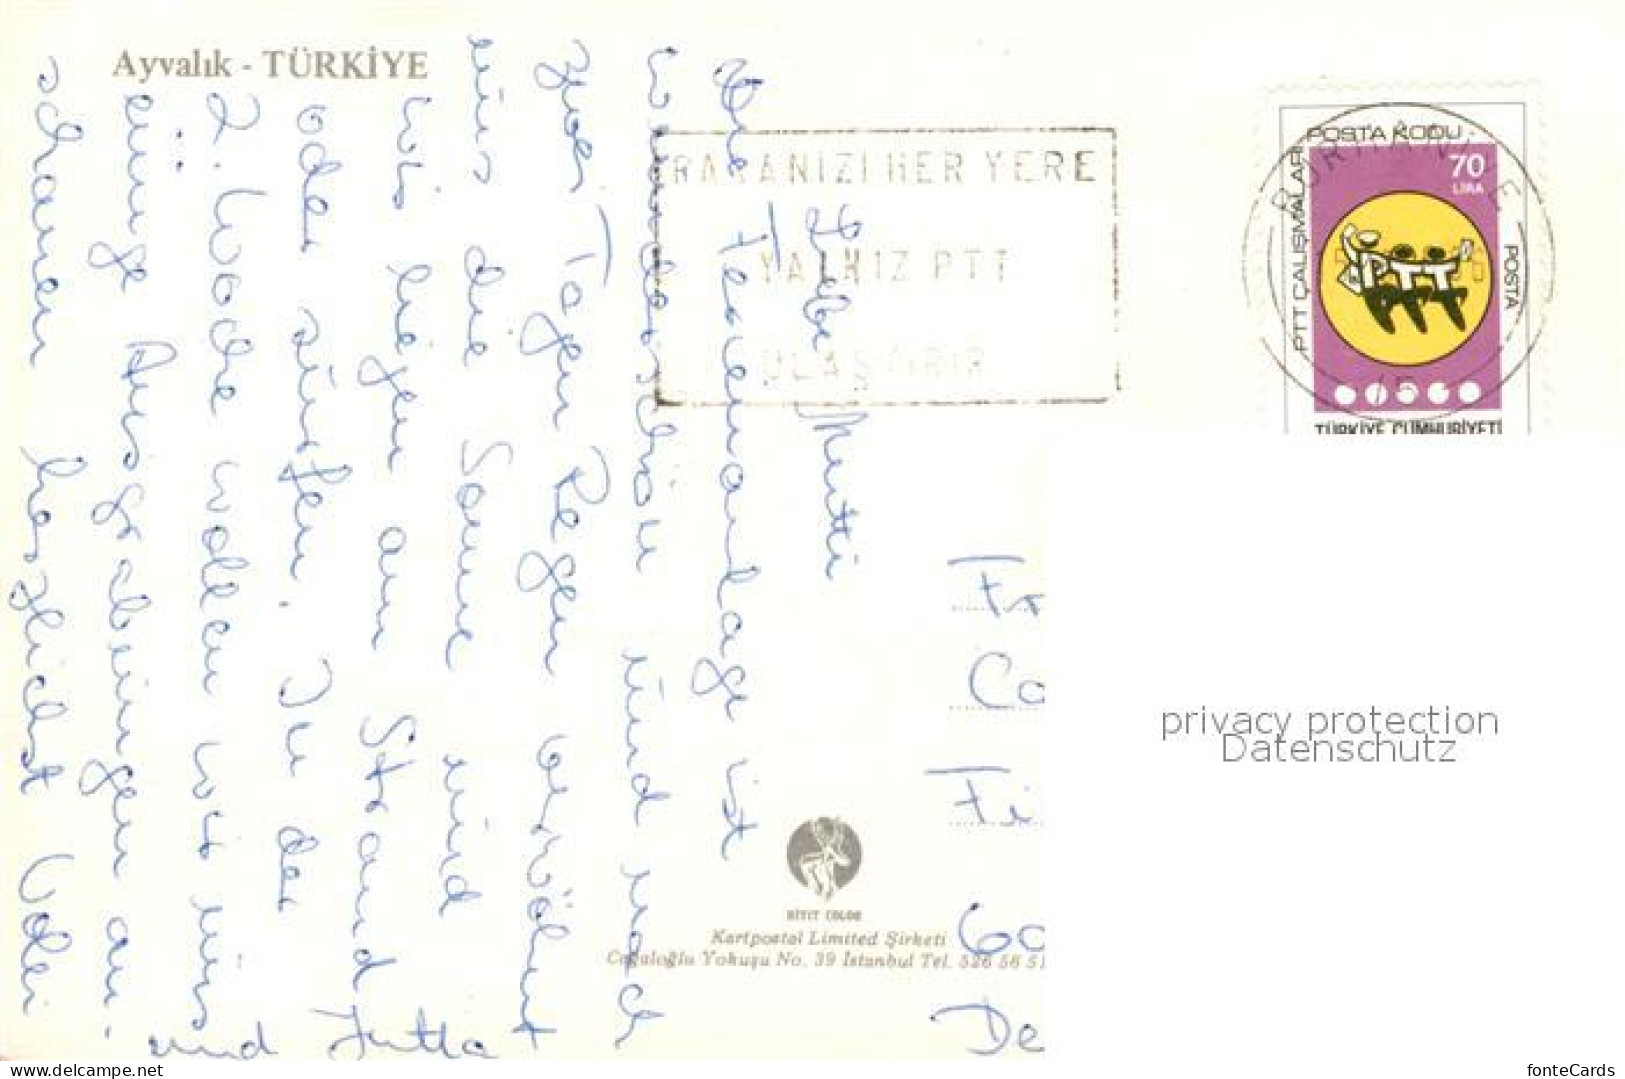 Ayvalık - TÜRKİYE
PARANIZI HER YERE
YALNIZ PTT
ULAŞTIRIR
PTT ÇALIŞMALARI
POSTA KODU
70
LİRA
PTT
POSTA
TÜRKİYE CUMHURİYETİ
BURHANİYE
Liebe Mutti
Die Ferienanlage ist
wunderschön und nach
zwei Tagen Regen verwöhnt
uns die Sonne und
wir liegen am Strand
oder surfen. In der
2. Woche wollen wir uns
einige Ausgrabungen an-
schauen herzlichst
und Jutta
Fr
Co
Fi
60
De
HİTİT COLOR
Kartpostal Limited Şirketi
Cağaloğlu Yokuşu No. 39 İstanbul Tel. 526 56 51
privacy protection
Datenschutz
www.delcampe.net
fonteCards